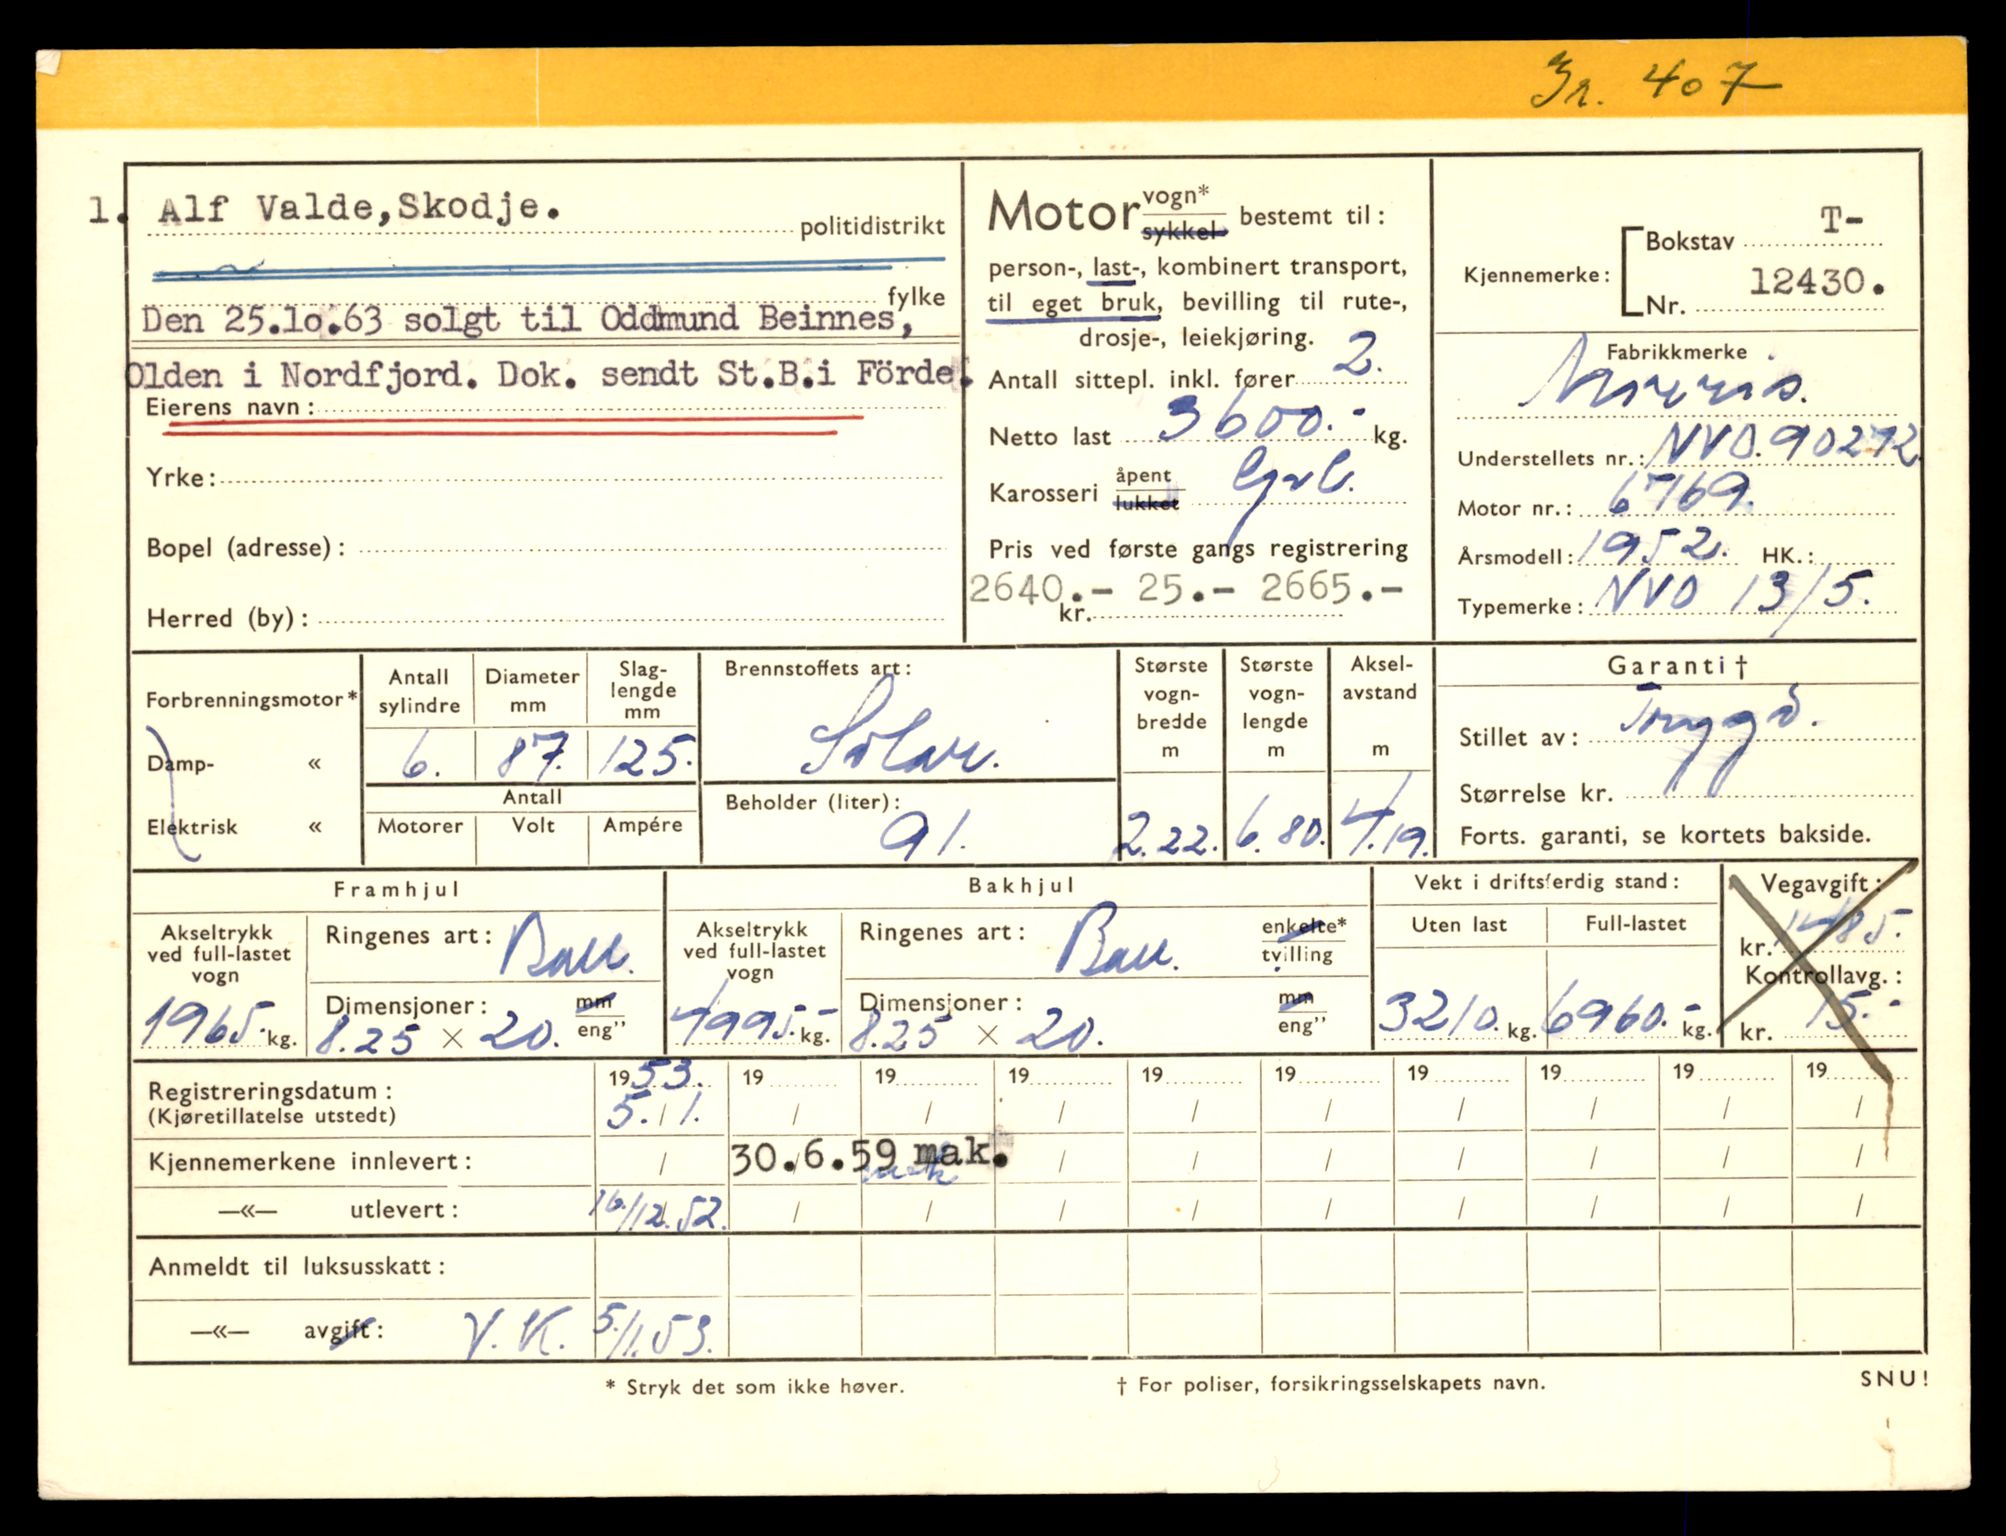 Gr. 407
1. Alf Valde, Skodje.
politidistrikt
fylke
Den 25.10.63 solgt til Oddmund Beinnes,
Olden i Nordfjord. Dok. sendt St.B.i Förde.
Eierens navn:
Yrke:
Bopel (adresse):
Herred (by):
Motor vogn* sykkel bestemt til:
person-, last-, kombinert transport,
til eget bruk, bevilling til rute-,
drosje-, leiekjøring.
Antall sittepl. inkl. fører 2.
Netto last 3600.- kg.
Karosseri åpent lukket
Pris ved første gangs registrering
2640.- 25.- 2665.-
kr.
Kjennemerke: Bokstav T-
Nr. 12430.
Fabrikkmerke
Morris.
Understellets nr.: NVO.90272
Motor nr.: 6769.
Årsmodell: 1952. HK.:
Typemerke: NVO 13/5.
Forbrenningsmotor*
Damp- «
Elektrisk «
Antall sylindre Diameter mm Slag-lengde mm
6. 87. 125.
Antall
Motorer Volt Ampére
Brennstoffets art:
Solar.
Beholder (liter):
91.
Største vogn-bredde m
2.22.
Største vogn-lengde m
6.80.
Aksel-avstand m
4.19.
Garanti†
Stillet av: Trygd.
Størrelse kr.
Forts. garanti, se kortets bakside.
Framhjul
Akseltrykk ved full-lastet vogn
1965.- kg.
Ringenes art: Ball.
Dimensjoner: mm eng"
8.25 × 20.
Bakhjul
Akseltrykk ved full-lastet vogn
4995.- kg.
Ringenes art: Ball. enkelte* tvilling
Dimensjoner: mm eng"
8.25 × 20.
Vekt i driftsferdig stand:
Uten last Full-lastet
3210. kg. 6960.- kg.
Vegavgift:
kr. 1485.-
Kontrollavg.:
kr. 15.-
Registreringsdatum: 1953. 19 19 19 19 19 19 19 19 19
(Kjøretillatelse utstedt) 5./1. / / / / / / / / /
Kjennemerkene innlevert: / 30.6.59 mak. / / / / / / /
—«— utlevert: 16/12.52. / / / / / / / / /
Anmeldt til luksusskatt:
—«— avgift: V.K. 5/1.53.
* Stryk det som ikke høver.
† For poliser, forsikringsselskapets navn.
SNU!